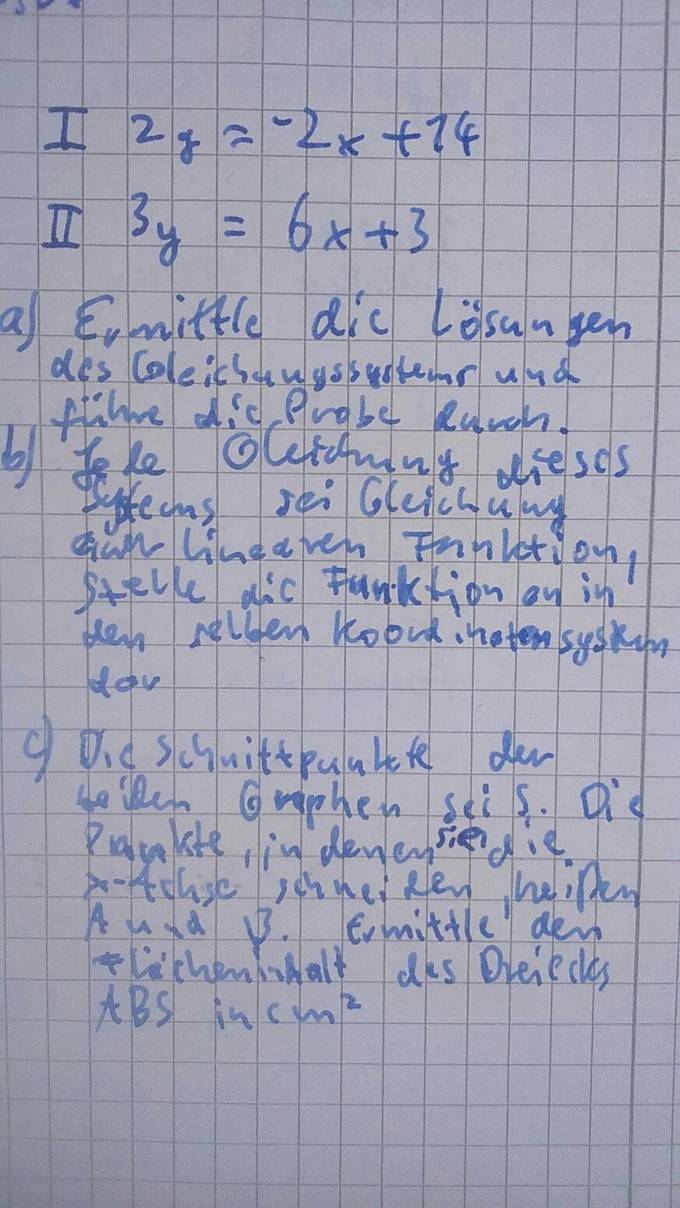 I 2y = -2x + 14
II 3y = 6x + 3
a) Ermittle die Lösungen
des Gleichungssystems und
führe die Probe durch.
b) Jede Gleichung dieses
Systems sei Gleichung
linearen Funktion,
stelle die Funktionen in
den selben Koordinatensystem
dar
c) Die Schnittpunkte der
beiden Graphen sei S. Die
Punkte, in denen sie die
x-Achse schneiden, heißen
A und B. Ermittle den
Flächeninhalt des Dreiecks
ABS in cm²